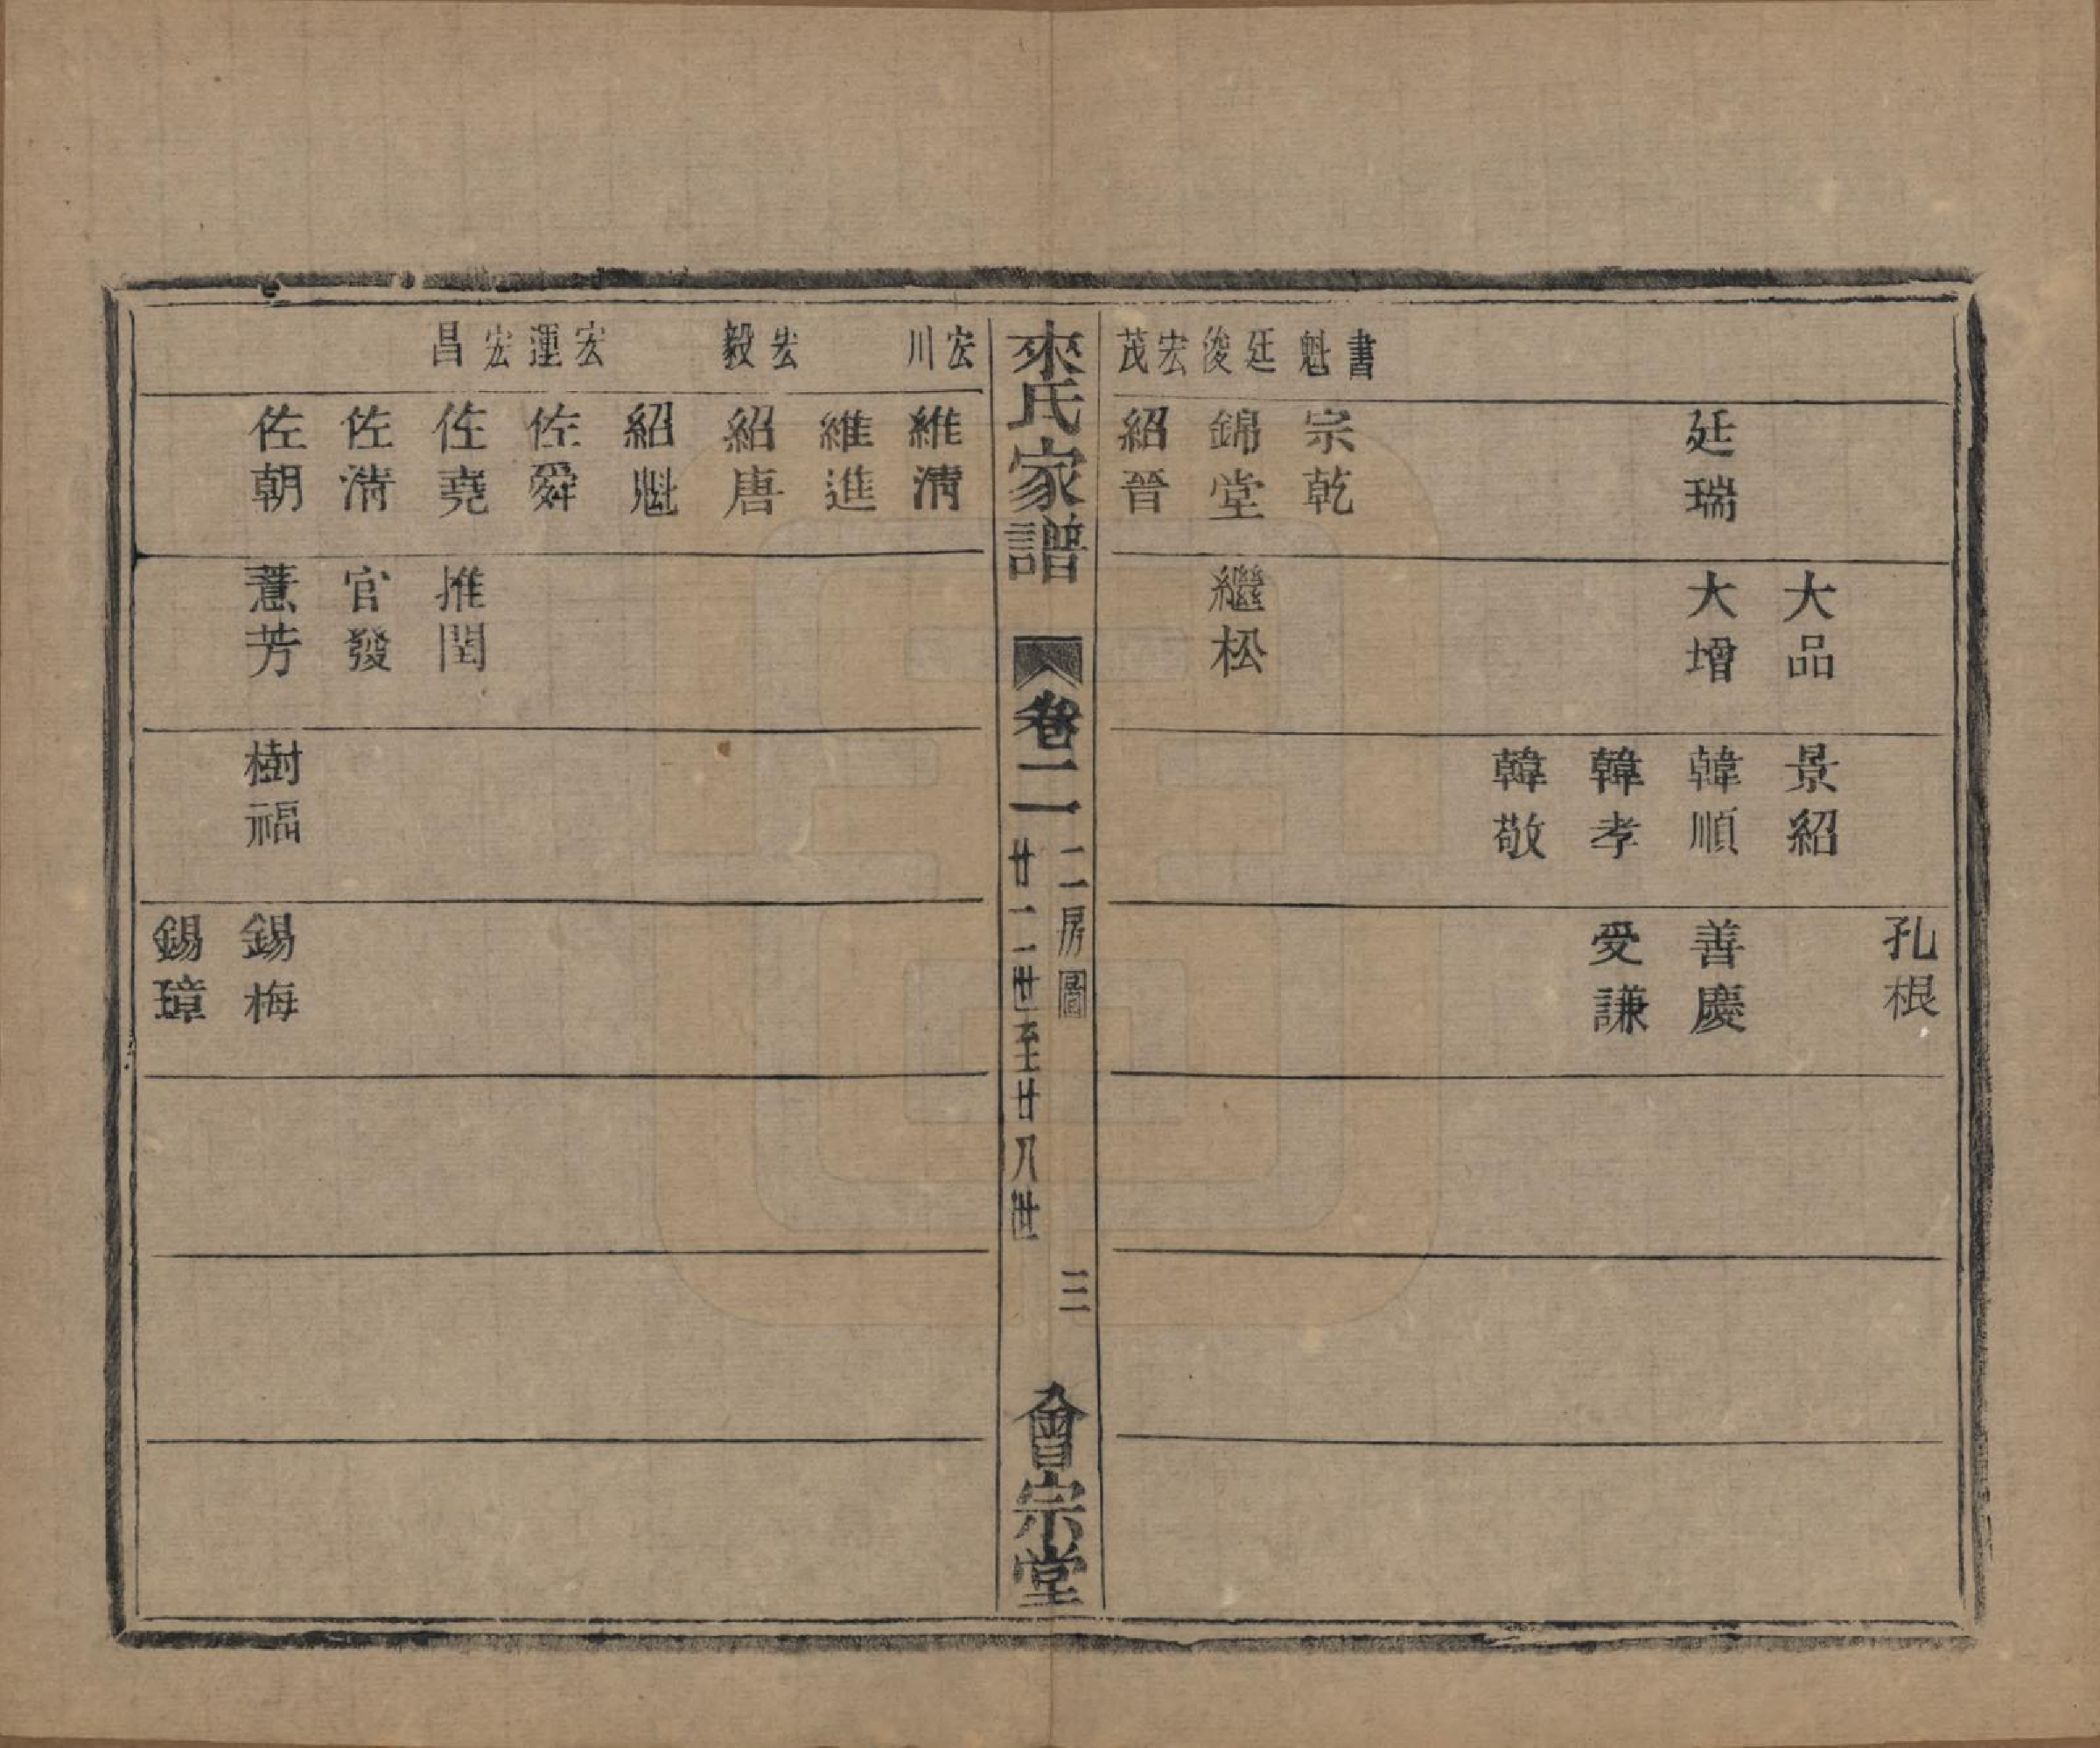 書魁
廷俊
宏茂
廷瑞
宗乾
錦堂
紹晉
大品
大增
繼松
景紹
韓順
韓孝
韓敬
孔根
善慶
受謙
來氏家譜
卷二
二房圖
廿一二世至廿八世
三
會宗堂
宏川
宏毅
宏運
宏昌
維清
維進
紹唐
紹魁
佐舜
佐堯
佐清
佐朝
推閏
官發
薏芳
樹福
錫梅
錫璋